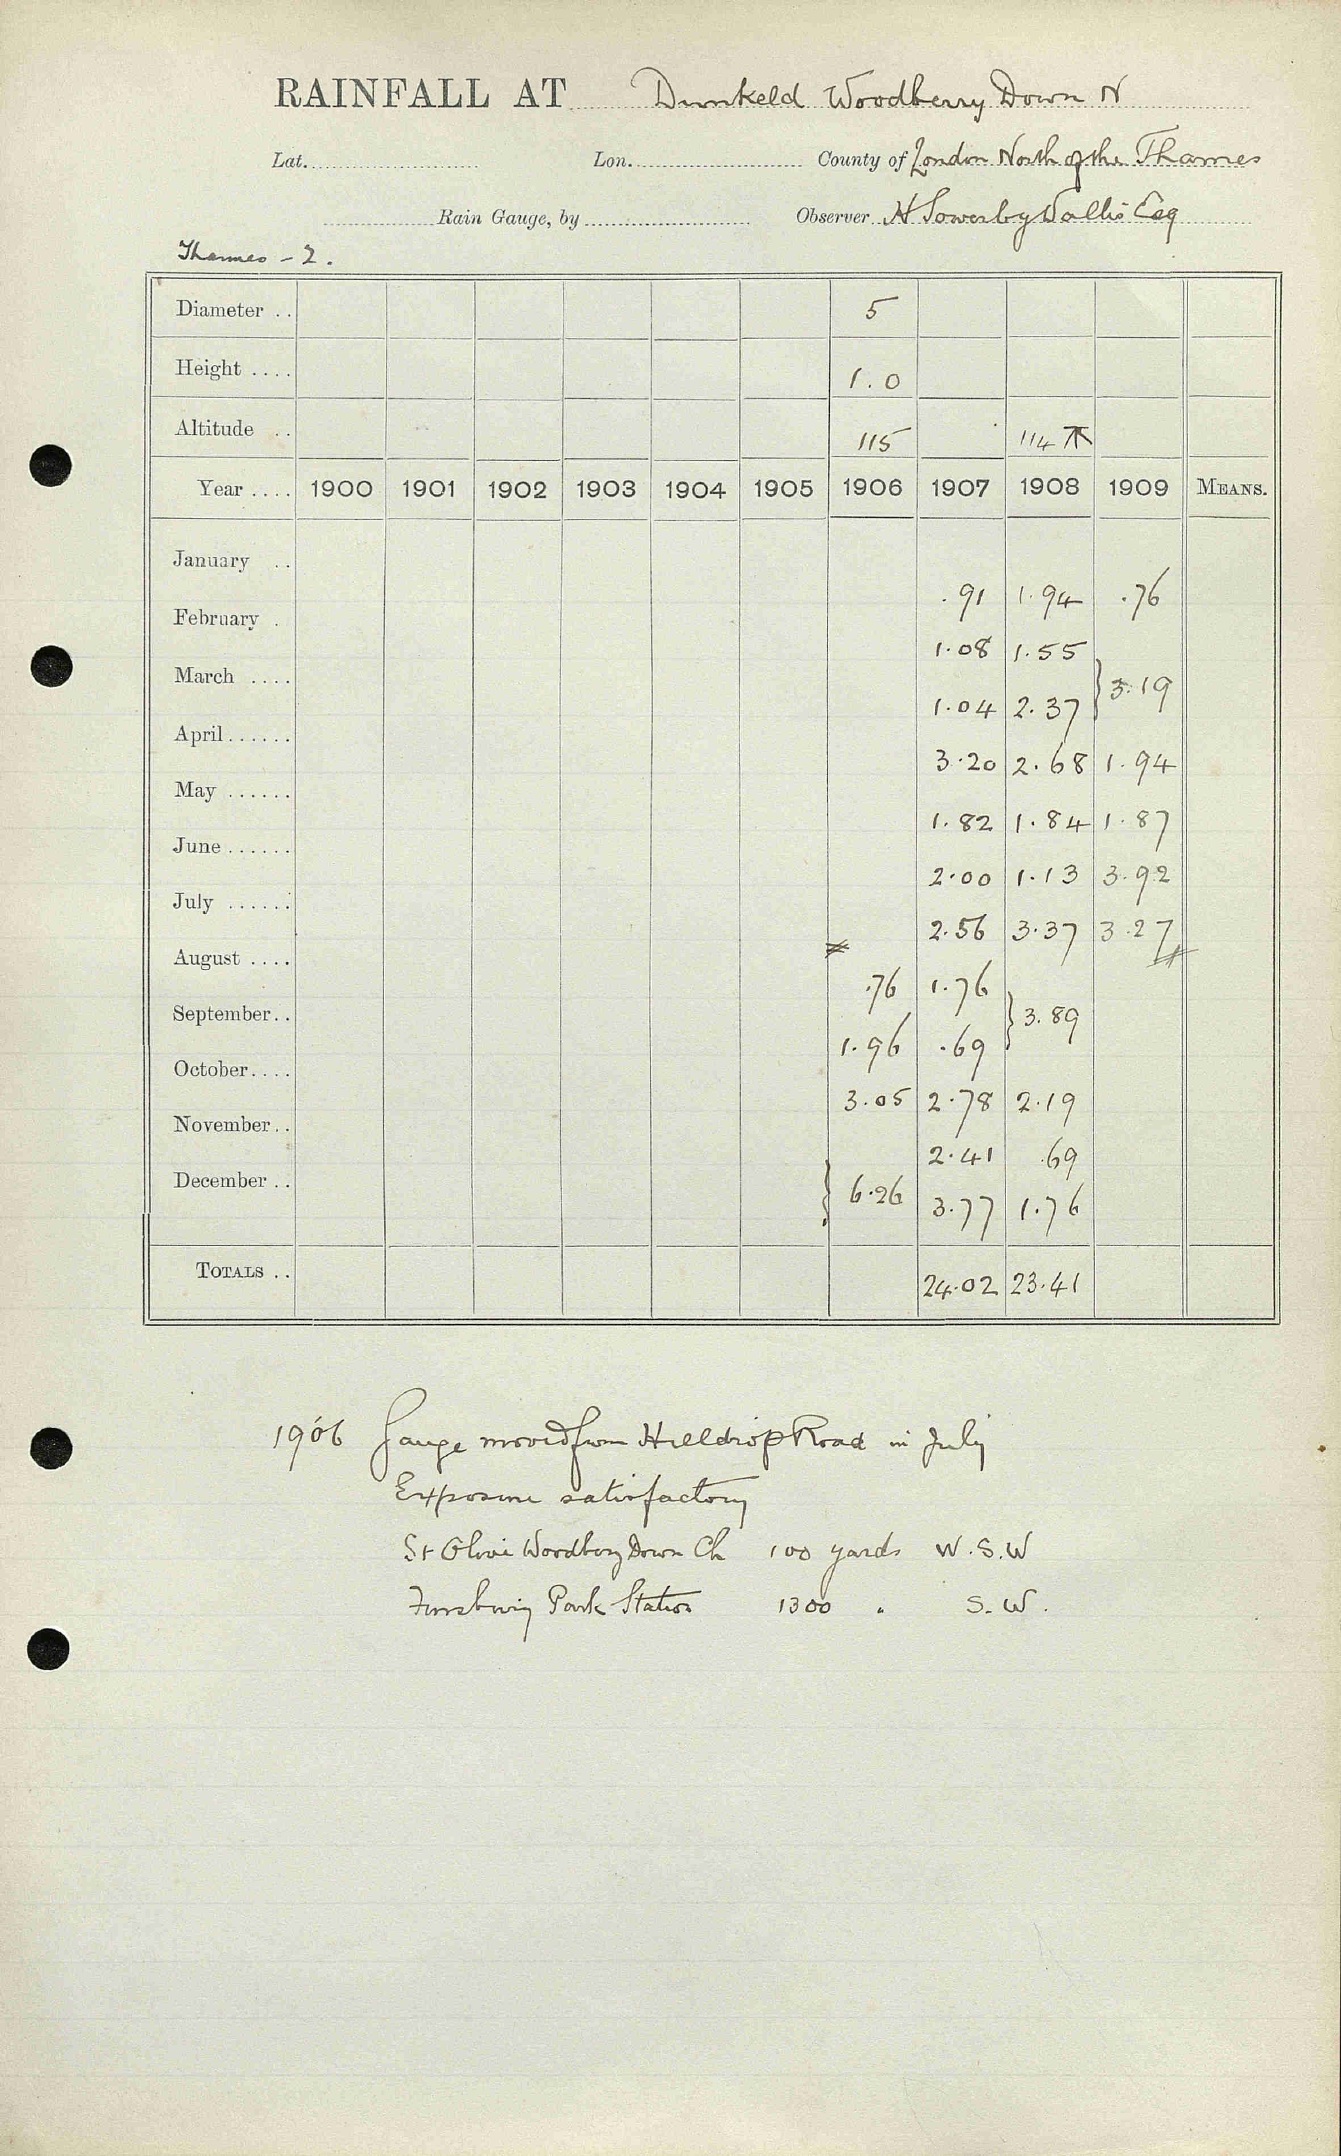 RAINFALL AT Dunkeld Woodberry Down N
Lat. Lon. County of London North of the Thames
Rain Gauge, by Observer H Sowerby Wallis Esq
Thames - 2.
Diameter .. 5
Height .... 1.0
Altitude .. 115 114
Year .... 1900 1901 1902 1903 1904 1905 1906 1907 1908 1909 MEANS.
January ..
.91 1.94 .76
February .
1.08 1.55
March ....
} 3.19
1.04 2.37
April......
3.20 2.68 1.94
May ......
1.82 1.84 1.87
June......
2.00 1.13 3.92
July ......
2.56 3.37 3.27
August ....
.76 1.76
September..
} 3.89
1.96 .69
October....
3.05 2.78 2.19
November..
2.41 .69
December ..
} 6.26 3.77 1.76
TOTALS .. 24.02 23.41
1906 Gauge moved from Hilldrop Road in July
Exposure satisfactory
St Olave Woodbery Down Ch 100 yards W.S.W
Finsbury Park Station 1300 " S.W.